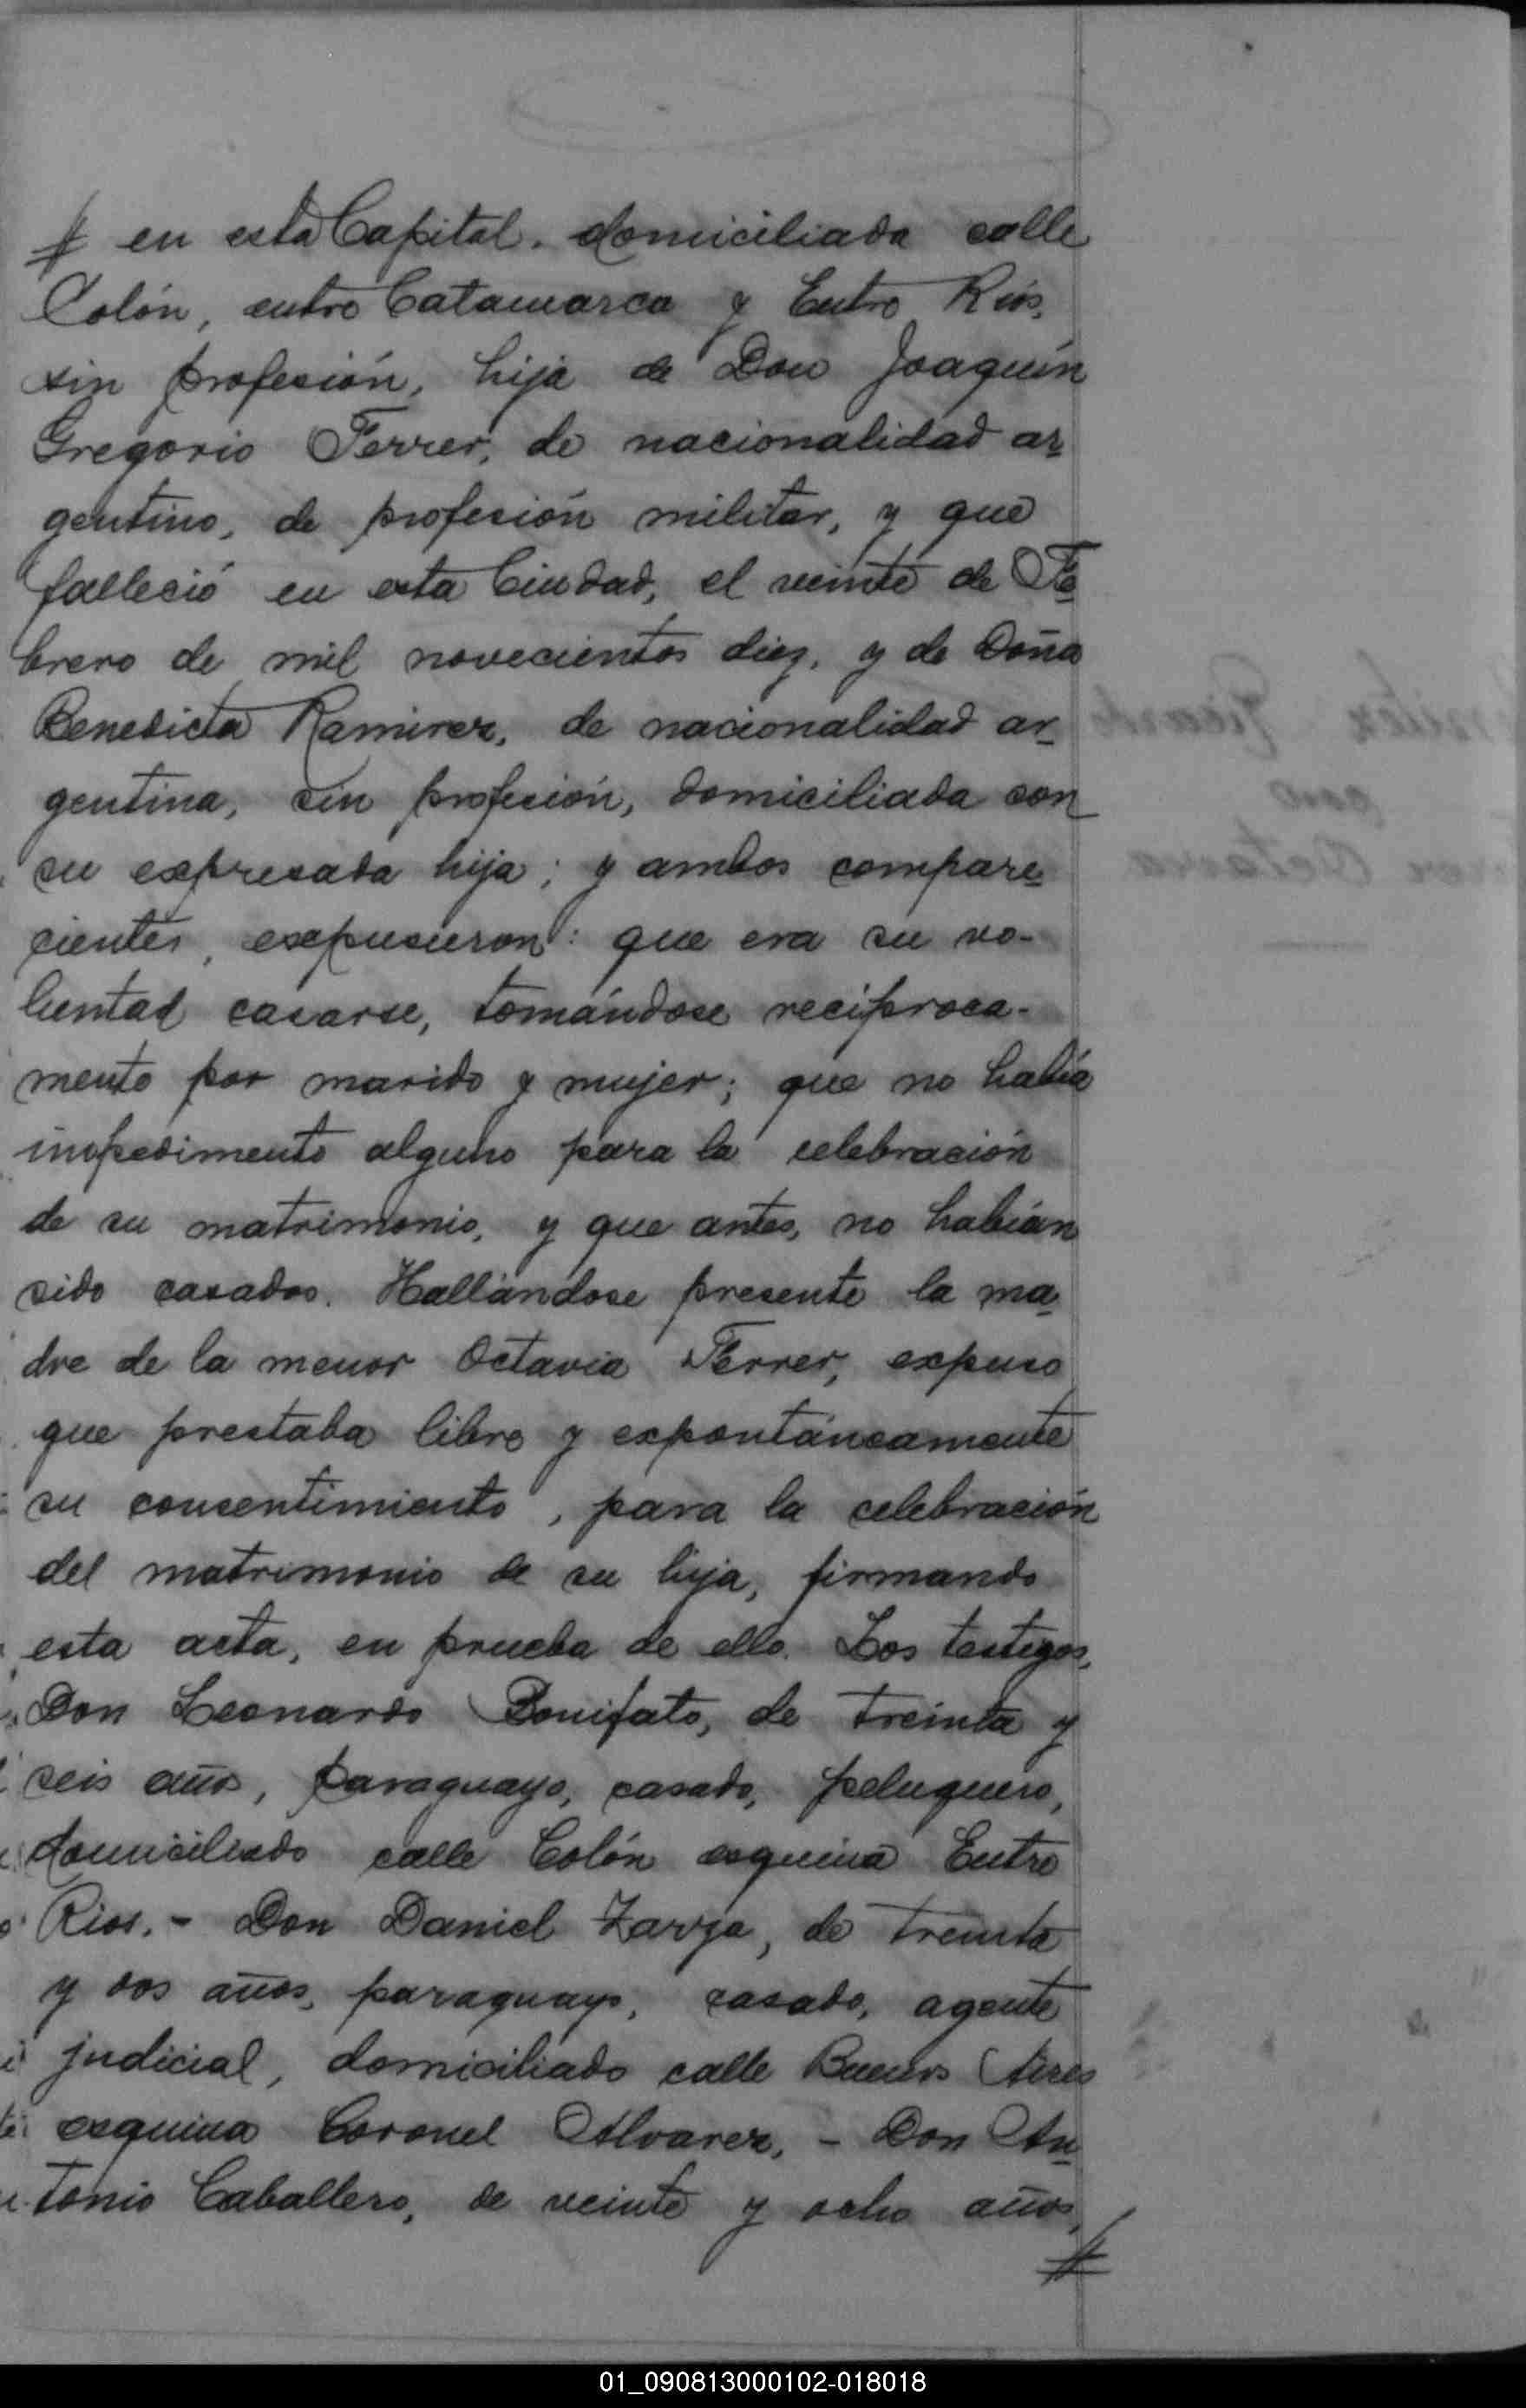 # en esta Capital. domiciliada calle
Colón, entre Catamarca y Entre Ríos,
sin profesión, hija de Don Joaquín
Gregorio Ferrer, de nacionalidad ar-
gentino, de profesión militar, y que
falleció en esta Ciudad, el veinte de Fe-
brero de mil novecientos diez, y de Doña
Benedicta Ramirez, de nacionalidad ar-
gentina, sin profesión, domiciliada con
su expresada hija; y ambos compare-
cientes, expusieron: que era su vo-
luntad casarse, tomándose reciproca-
mente por marido y mujer; que no había
impedimento alguno para la celebración
de su matrimonio, y que antes, no habían
sido casados. Hallándose presente la ma-
dre de la menor Octavia Ferrer, expuso
que prestaba libre y expontáneamente
su consentimiento, para la celebración
del matrimonio de su hija, firmando
esta acta, en prueba de ello. Los testigos,
Don Leonardo Bonifato, de treinta y
seis años, paraguayo, casado, peluquero,
domiciliado calle Colón esquina Entre
Rios. - Don Daniel Zarza, de treinta
y dos años, paraguayo, casado, agente
judicial, domiciliado calle Buenos Aires
esquina Coronel Alvarez. - Don An-
tonio Caballero, de veinte y ocho años,
#
01_090813000102-018018